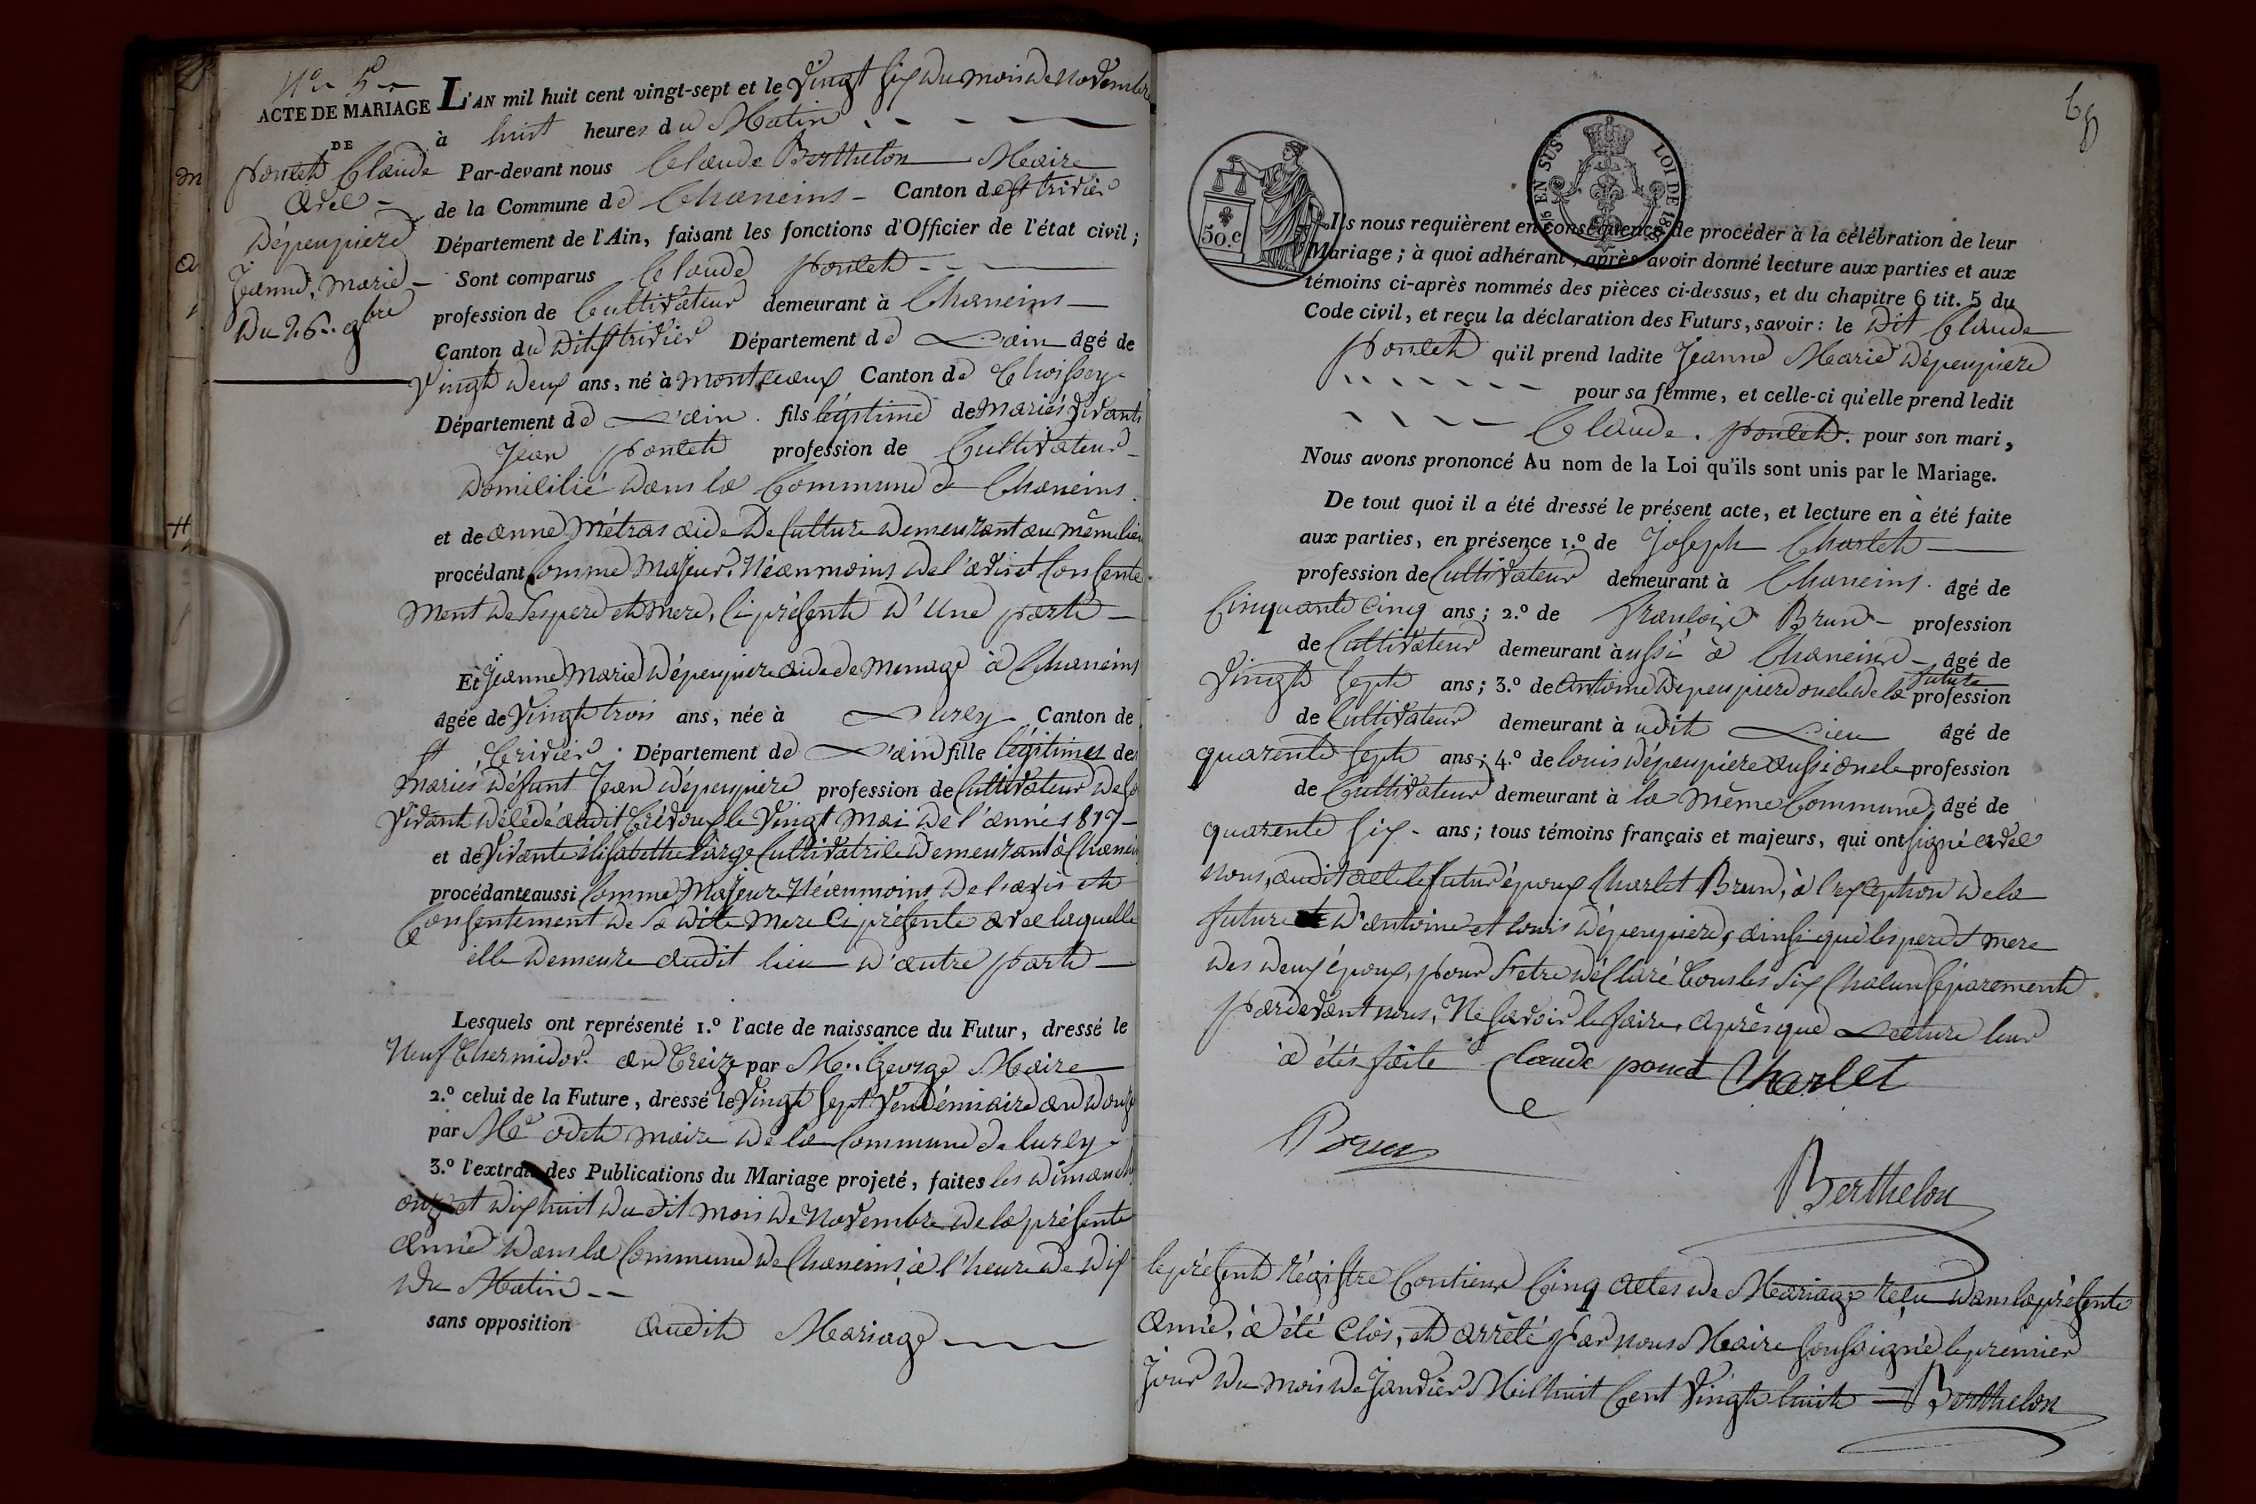 N.° 5.
ACTE DE MARIAGE
DE
Poncet Claude
avec
Dépeupiere
Jeanne, Marie
Du 26. 9bre
L'AN mil huit cent vingt-sept et le Vingt six du mois de novembre
à huit heures du Matin
Par-devant nous Claude Berthelon Maire
de la Commune de Chaneins Canton de St trivier
Département de l'Ain, faisant les fonctions d'Officier de l'état civil;
Sont comparus Claude Poncet
profession de Cultivateur demeurant à Chaneins
Canton du dit St trivier Département de L'ain âgé de
Vingt deux ans, né à montceaux Canton de Thoissey
Département de L'ain fils légitime de mariés vivants
Jean Poncet profession de Cultivateur
domicilié dans la Commune de Chaneins
et de anne Métras aide de Culture demeurant au même lieu
procédant Comme Majeur, Néanmoins de l'avis et Consente
ment de Ses pere et mere, Ci présents d'Une part
Et Jeanne Marie dépeupiere aide de menage à Chaneins
âgée de Vingt trois ans, née à Lurcy Canton de
St Trivier Département de L'ain fille légitimes de
mariés défunt Jean dépeupiere profession de Cultivateur de So
Vivant décédé audit Trévoux le Vingt Mai de l'année 1817
et de Vivante élisabethe Large Cultivatrice demeurant à Chaneins
procédante aussi Comme Majeure Néanmoins de l'avis et
Consentement de Sa dite Mere Ci présente avec laquelle
elle demeure audit lieu d'autre part
Lesquels ont représenté 1.° l'acte de naissance du Futur, dressé le
Neuf Thermidor an treize par M. George Maire
2.° celui de la Future, dressé le Vingt Sept Vendémiaire an douze
par Mr odet maire de la Commune de lurcy
3.° l'extrait des Publications du Mariage projeté, faites les dimanche
onze et dix huit du dit mois de Novembre de la présente
année dans la Commune de Chaneins à l'heure de dix
du Matin
sans opposition audit Mariage
65
50.c
EN SUS LOI DE 18
Ils nous requièrent en conséquence de procéder à la célébration de leur
Mariage; à quoi adhérant, après avoir donné lecture aux parties et aux
témoins ci-après nommés des pièces ci-dessus, et du chapitre 6 tit. 5 du
Code civil, et reçu la déclaration des Futurs, savoir: le dit Claude
Poncet qu'il prend ladite Jeanne Marie dépeupiere
pour sa femme, et celle-ci qu'elle prend ledit
Claude. Poncet. pour son mari,
Nous avons prononcé Au nom de la Loi qu'ils sont unis par le Mariage.
De tout quoi il a été dressé le présent acte, et lecture en à été faite
aux parties, en présence 1.° de Joseph Charlet
profession de Cultivateur demeurant à Chaneins. âgé de
Cinquante Cinq ans; 2.° de François Brun profession
de Cultivateur demeurant aussi à Chaneins âgé de
Vingt Sept ans; 3.° de antoine dépeupiere oncle de la future profession
de Cultivateur demeurant à udit Lieu âgé de
quarente Sept ans; 4.° de louis dépeupiere aussi oncle profession
de Cultivateur demeurant à la même Commune, âgé de
quarente Six ans; tous témoins français et majeurs, qui ont signé avec
Nous, audit acte le futur époux Charlet Brun, à l'exception de la
future d'antoine et louis dépeupiere, ainsi que les pere et mere
des deux époux, pour S'etre déclaré tous les Six Chacun Séparement
Pardevant nous, Ne Savoir le faire, après que Lecture leur
à étés faite Claude poncet Charlet
Brun
Berthelon
le présent Régistre Contient Cinq actes de Mariage reçu dans la présente
année, à été Clos, et arrêté par nous Maire Soussigné le premier
Jour du mois de Janvier Mil huit Cent Vingt huit Berthelon